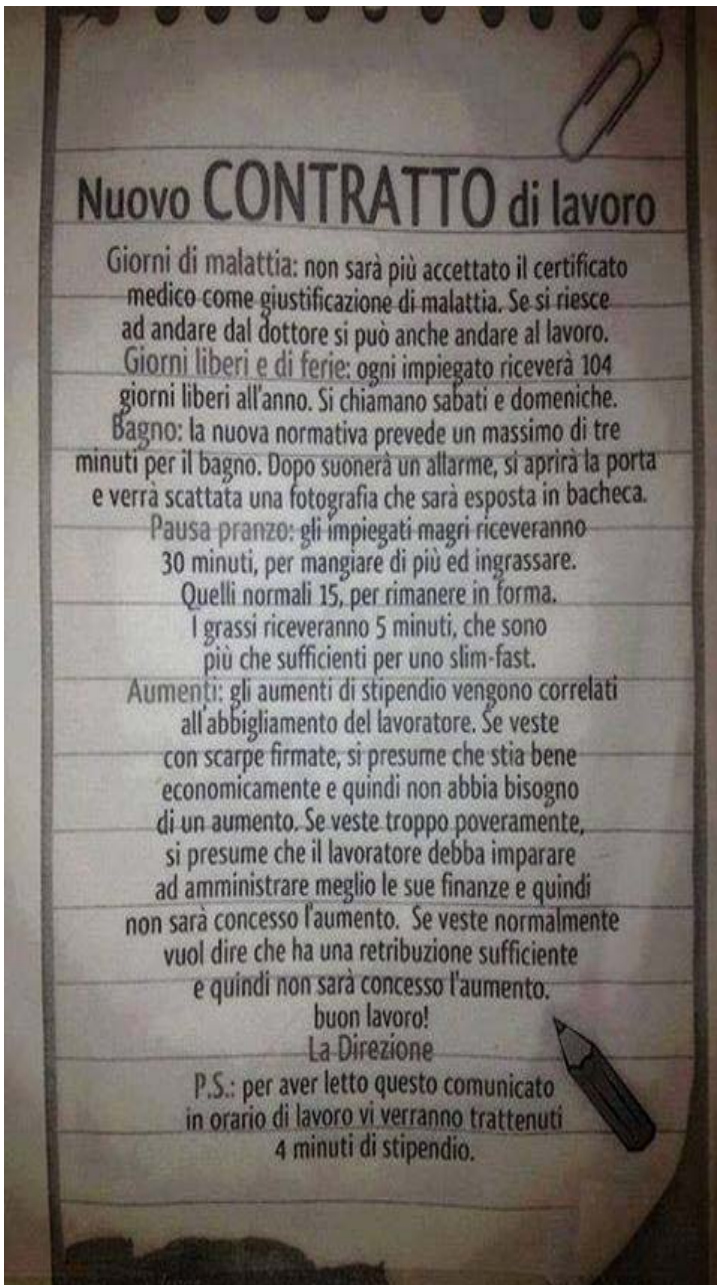 Nuovo CONTRATTO di lavoro
Giorni di malattia: non sarà più accettato il certificato
medico come giustificazione di malattia. Se si riesce
ad andare dal dottore si può anche andare al lavoro.
Giorni liberi e di ferie: ogni impiegato riceverà 104
giorni liberi all'anno. Si chiamano sabati e domeniche.
Bagno: la nuova normativa prevede un massimo di tre
minuti per il bagno. Dopo suonerà un allarme, si aprirà la porta
e verrà scattata una fotografia che sarà esposta in bacheca.
Pausa pranzo: gli impiegati magri riceveranno
30 minuti, per mangiare di più ed ingrassare.
Quelli normali 15, per rimanere in forma.
I grassi riceveranno 5 minuti, che sono
più che sufficienti per uno slim-fast.
Aumenti: gli aumenti di stipendio vengono correlati
all'abbigliamento del lavoratore. Se veste
con scarpe firmate, si presume che stia bene
economicamente e quindi non abbia bisogno
di un aumento. Se veste troppo poveramente,
si presume che il lavoratore debba imparare
ad amministrare meglio le sue finanze e quindi
non sarà concesso l'aumento. Se veste normalmente
vuol dire che ha una retribuzione sufficiente
e quindi non sarà concesso l'aumento.
buon lavoro!
La Direzione
P.S.: per aver letto questo comunicato
in orario di lavoro vi verranno trattenuti
4 minuti di stipendio.